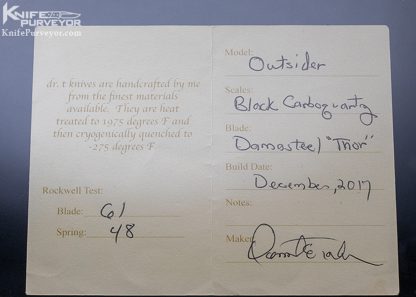 KNIFE
PURVEYOR
KnifePurveyor.com
dr. t knives are handcrafted by me
from the finest materials
available. They are heat
treated to 1975 degrees F and
then cryogenically quenched to
-275 degrees F
Rockwell Test:
Blade: 61
Spring: 48
Model:
Outsider
Scales:
Black Carboquartz
Blade:
Damasteel "Thor"
Build Date:
December, 2017
Notes:
Maker